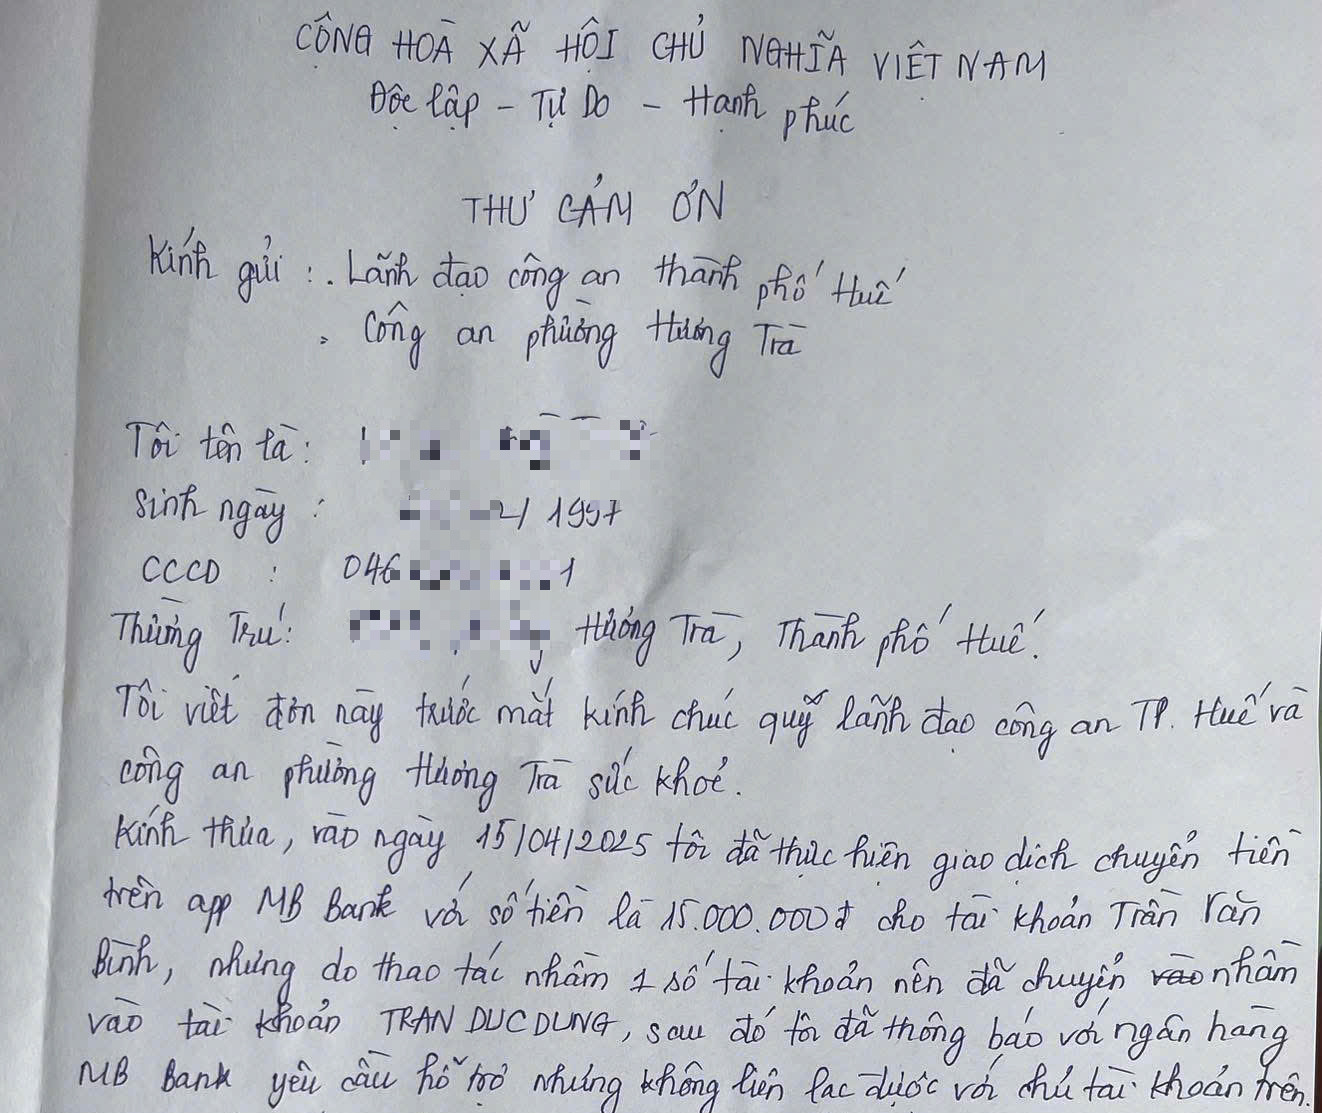 CỘNG HOÀ XÃ HỘI CHỦ NGHĨA VIỆT NAM
Độc lập - Tự Do - Hạnh phúc
THƯ CẢM ƠN
Kính gửi : . Lãnh đạo công an thành phố Huế
. Công an phường Hương Trà
Tôi tên là :
Sinh ngày : 2/ 1997
CCCD : 046 1
Thường Trú : Hương Trà, Thành phố Huế.
Tôi viết đơn này trước mắt kính chúc quý lãnh đạo công an TP. Huế và
công an phường Hương Trà sức khoẻ.
Kính thưa, vào ngày 15/04/2025 tôi đã thực hiện giao dịch chuyển tiền
trên app MB Bank với số tiền là 15.000.000đ cho tài khoản Trần Văn
Bình, nhưng do thao tác nhầm 1 số tài khoản nên đã chuyển vào nhầm
vào tài khoản TRAN DUC DUNG, sau đó tôi đã thông báo với ngân hàng
MB Bank yêu cầu hỗ trợ nhưng không liên lạc được với chủ tài khoản trên.